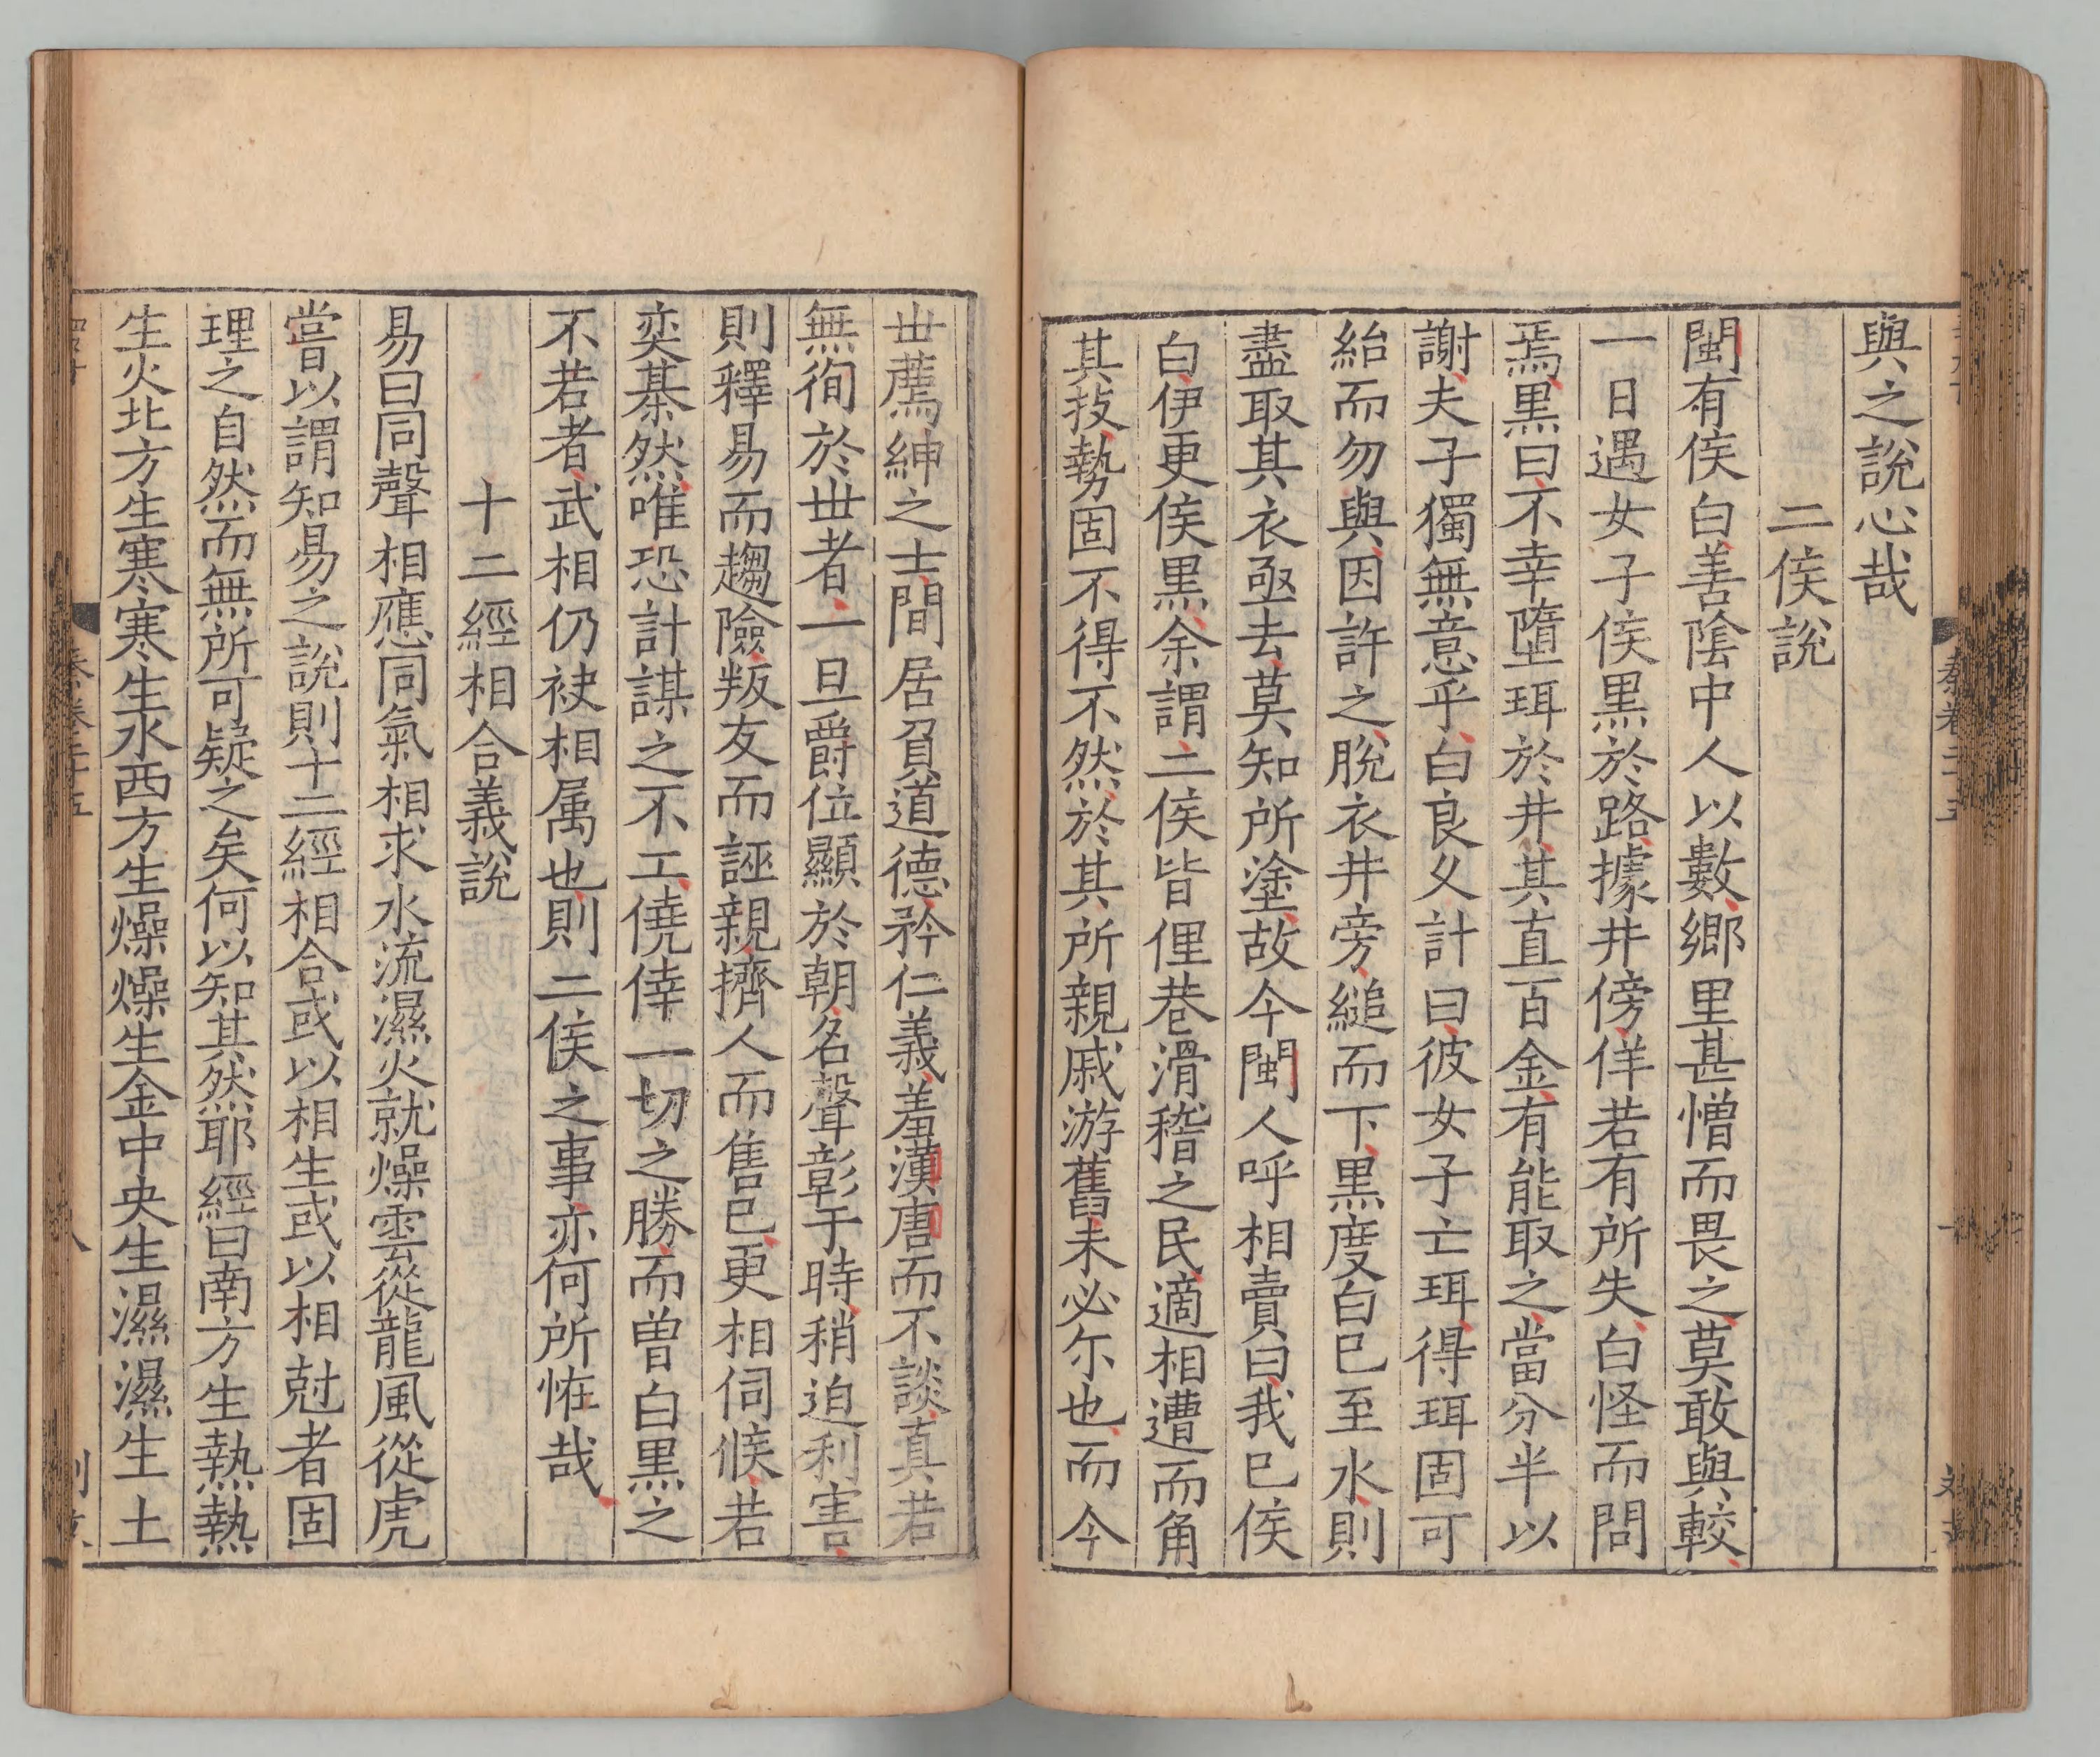 與之說心哉
二侯說
閩有侯白善陰中人以數鄉里甚憎而畏之莫敢與較
一日遇女子侯黑於路據井傍佯若有所失白怪而問
焉黑曰不幸墮珥於井其直百金有能取之當分半以
謝夫子獨無意乎白良久計曰彼女子亡珥得珥固可
紿而勿與因許之脫衣井旁縋而下黑度白已至水則
盡取其衣亟去莫知所塗故今閩人呼相賣曰我已侯
白伊更侯黑余謂二侯皆俚巷滑稽之民適相遭而角
其技勢固不得不然於其所親戚游舊未必尔也而今
世薦紳之士閒居負道德矜仁義羞漢唐而不談真若
無徇於世者一旦爵位顯於朝名聲彰于時稍迫利害
則釋易而趨險叛友而誣親擠人而售已更相伺候若
奕棊然唯恐計謀之不工僥倖一切之勝而曽白黑之
不若者武相仍袂相属也則二侯之事亦何所恠哉
十二經相合義說
易曰同聲相應同氣相求水流濕火就燥雲從龍風從虎
嘗以謂知易之說則十二經相合或以相生或以相尅者固
理之自然而無所可疑之矣何以知其然耶經曰南方生熱熱
生火北方生寒寒生水西方生燥燥生金中央生濕濕生土